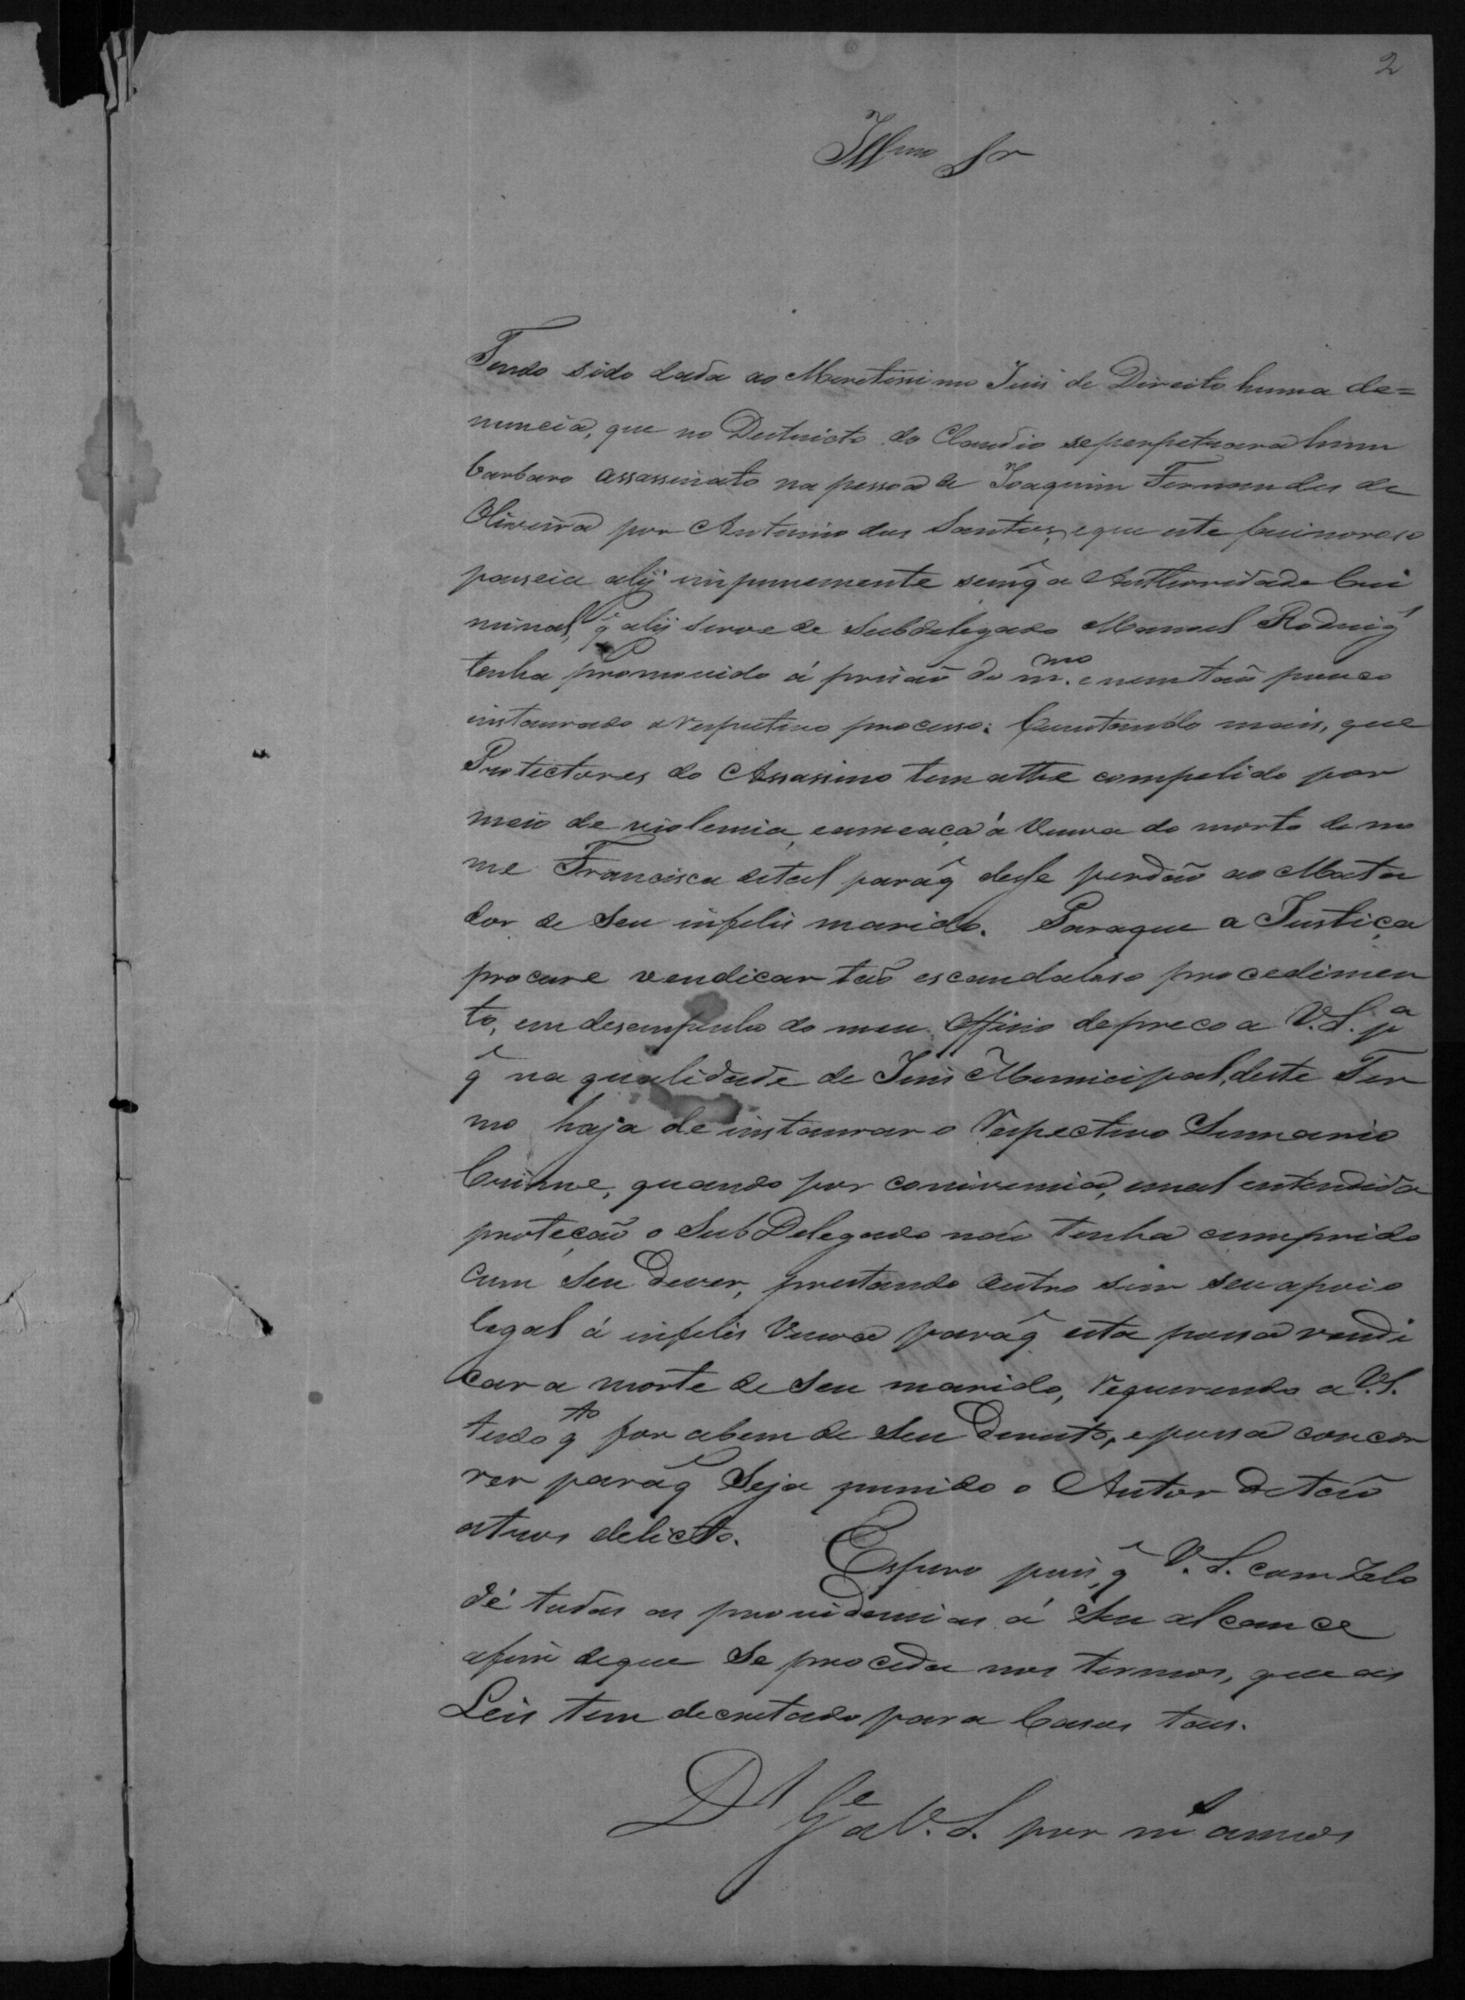 2
Illmo Sr
Tendo sido dada ao Meretissimo Juis de Direito huma de=
nuncia, que no Destricto do Claudio se perpetuara hum
barbaro assassinato na pessoa de Joaquim Fernandes de
Oliveira por Antonio dos Santos, e que este facinoroso
passeia alij impunemente sem q̂ a Authoridade Cri
minal, q̂ alij serve de Subdelegado Manoel Rodrig'
tenha promovido á prisaõ do m.mo e nem taõ pouco
instaurado o respectivo processo: Constando mais, que
Protectores do Assassino tem athe compelido por
meio de violencia, e ameaça á Viuva do morto de no
me Francisca de tal para q̂ desse perdaõ ao Mata
dor de seu infelis marido. Para que a Justiça
procure vendicar taõ escandaloso procedimen
to, em desempenho do meu Officio depreco a V.S. pa
q̂ na qualidade de Juis Municipal, deste Ter
mo haja de instaurar o respectivo Sumario
Crime, quando por conivencia, e mal entendida
proteçaõ o SubDelegado naõ tenha cumprido
com seu Dever, prestando outro sim seu apoio
legal á infelis Viuva para q̂ esta possa vendi
car a morte de seu marido, requerendo a V.S.
tudo qto for a bem de seu Direito, e possa concor
rer para q̂ seja punido o Autor de taõ
atros delicto. Espero pois, q̂ V. S. com Zelo
dé todas as providencias á seu alcance
afim de que se proceda nos termos, que as
Leis tem decretado para Casos taes.
Ds Ge a V. S. por ms annos